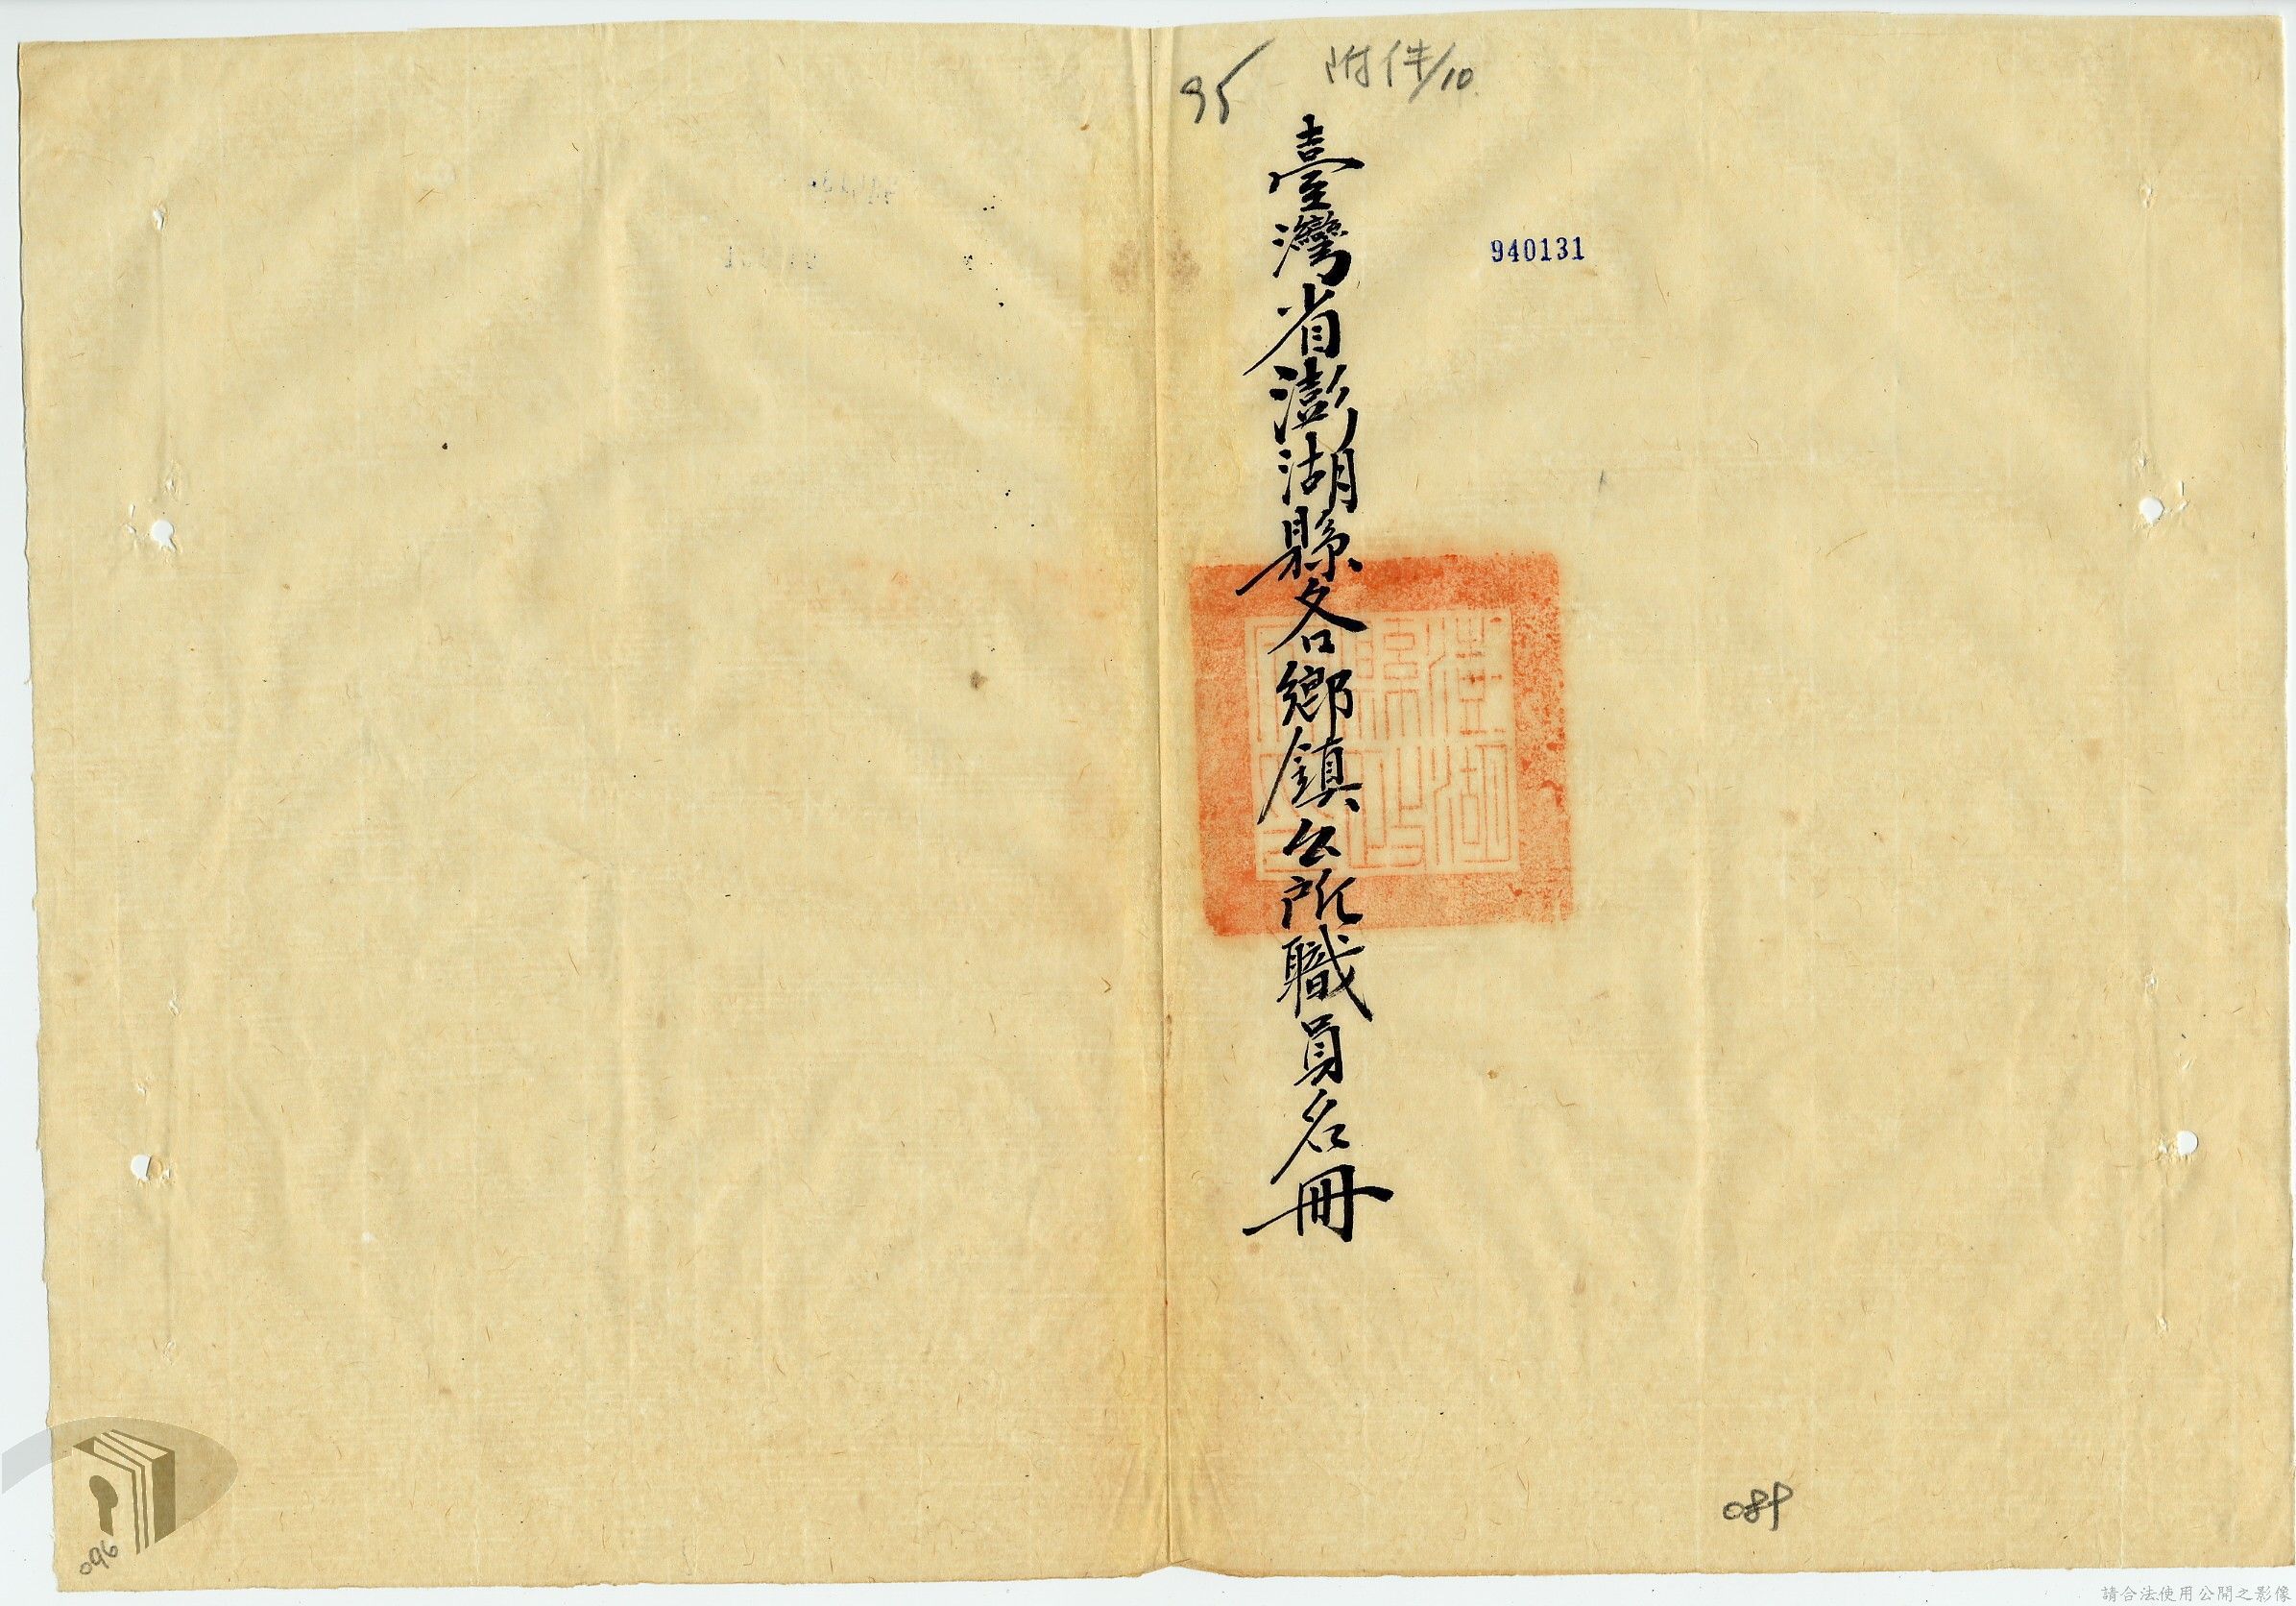 附件/10
95
臺灣省澎湖縣各鄉鎮公所職員名冊
940131
澎湖縣政府
089
096
請合法使用公開之影像